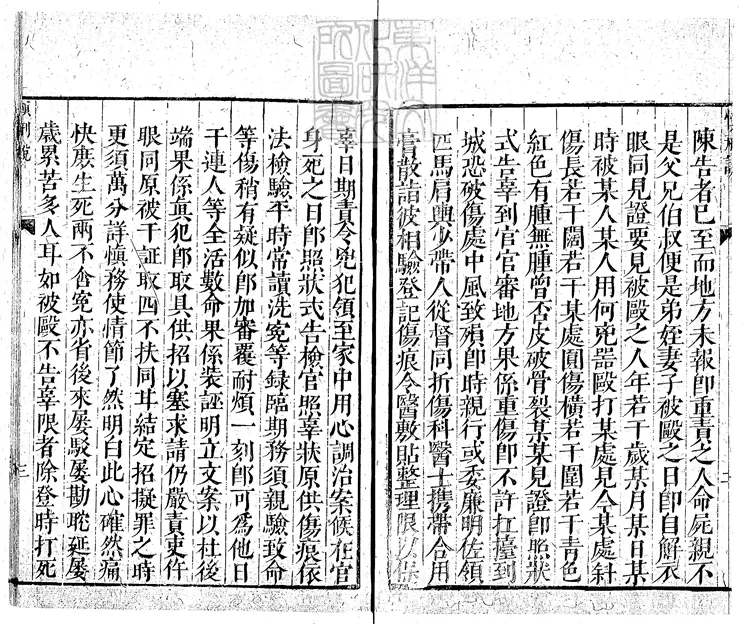 陳告者已至而地方未報卽重責之人命屍親不
是父兄伯叔便是弟姪妻子被毆之日卽自解衣
眼同見證要見被毆之人年若干歲某月某日某
時被某人某人用何兇器毆打某處見今某處斜
傷長若干闊若干某處圍傷橫若干圍若干青色
紅色有腫無腫曾否皮破骨裂某某見證卽照狀
式告辜到官官審地方果係重傷卽不許扛擡到
城恐破傷處中風致殞卽時親行或委廉明佐領
匹馬肩輿少帶人從督同折傷科醫士携帶合用
膏散詣彼相驗登記傷痕令醫敷貼整理限以保
辜日期責令兇犯領至家中用心調治案候在官
身死之日卽照狀式告檢官照辜狀原供傷痕依
法檢驗平時常讀洗寃等録臨期務須親驗致命
等傷稍有疑似卽加審覆耐煩一刻卽可爲他日
干連人等全活數命果係裝誣明立文案以杜後
端果係眞犯卽取具供招以塞求請仍嚴責吏仵
眼同原被干証取四不扶同耳結定招擬罪之時
更須萬分詳愼務使情節了然明白此心確然痛
快庶生死兩不含寃亦省後來屢駁屢勘眈延屢
歲累苦多人耳如被毆不告辜限者除登時打死
三